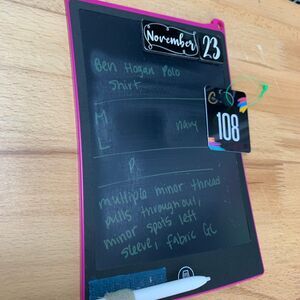 November 23
Ben Hogan Polo
Shirt
108
M
navy
L
P.
multiple minor thread
pulls throughout,
minor spots left
sleeve, fabric GC